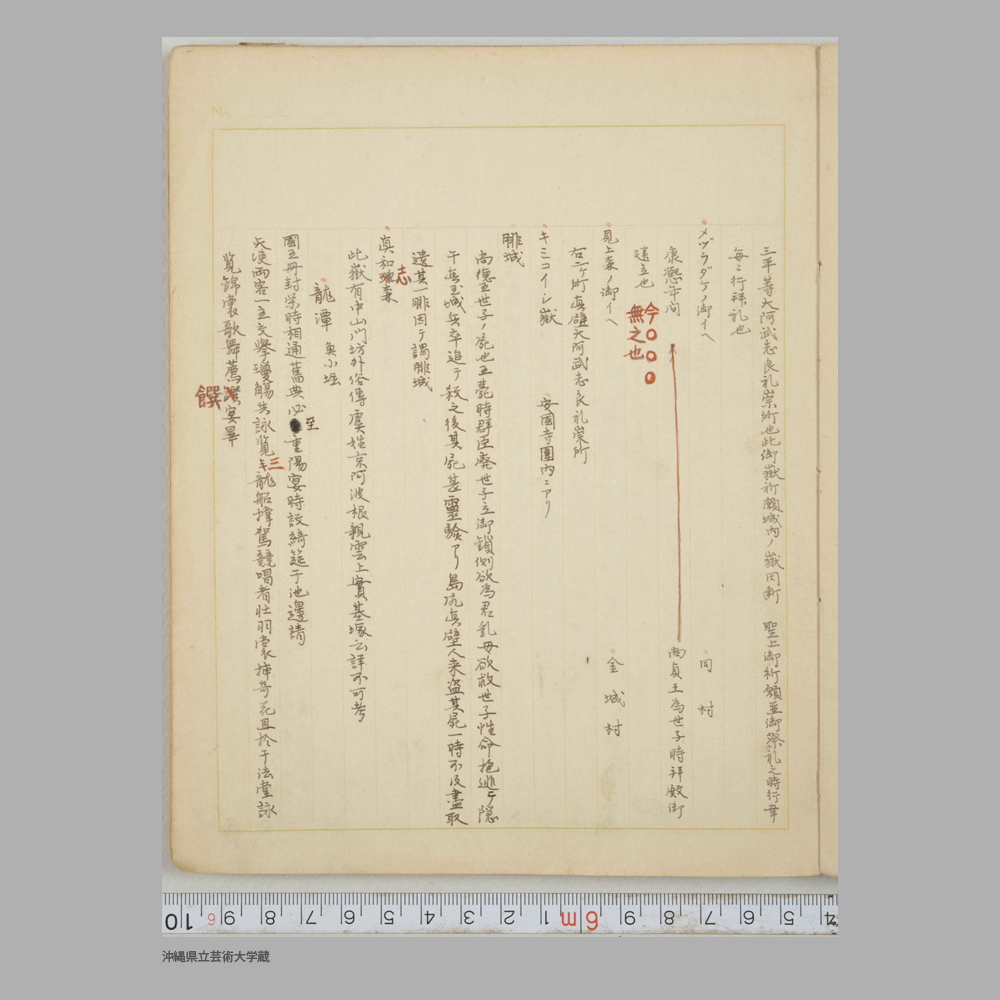 三平等大阿武志良礼崇所也此御嶽祈願城内ノ嶽同断 聖上御祈願並御祭礼之時行幸
毎々行拝礼也
メヅラダケノ御イヘ 同村
康熙年間 尚貞王為世子時拝殿御
建立也
今〇〇〇
無之也
見上森ノ御イヘ 金城村
右二ヶ所真壁大阿武志良礼崇所
キミコイシ嶽 安國寺圍内ニアリ
腓城
尚徳王世子ノ屍也王薨時群臣廃世子立御鎖側欲為君乳母欲救世子性命抱逃テ隠
于真玉城兵卒追テ殺之後其屍甚靈驗アリ島尻真壁人来盗其屍一時不及盡取
遺其一腓因テ謂腓城
真和地森
志
此嶽有中山門坊外俗傳虞姓京阿波根親雲上實基塚云詳不可考
龍潭 魚小堀
國王冊封榮時相通舊典必至重陽宴時設綺筵于池邊請
天使両客一主交擧瓊觴共詠覧三龍船撑駕競唱者壮羽裳挿奇花且於于法堂詠
覧錦裳歌舞薦 宴畢
饌
No.
10 6 9 8 7 6 5 4 3 2 1 6m 9 8 7 6 5 4
沖縄県立芸術大学蔵